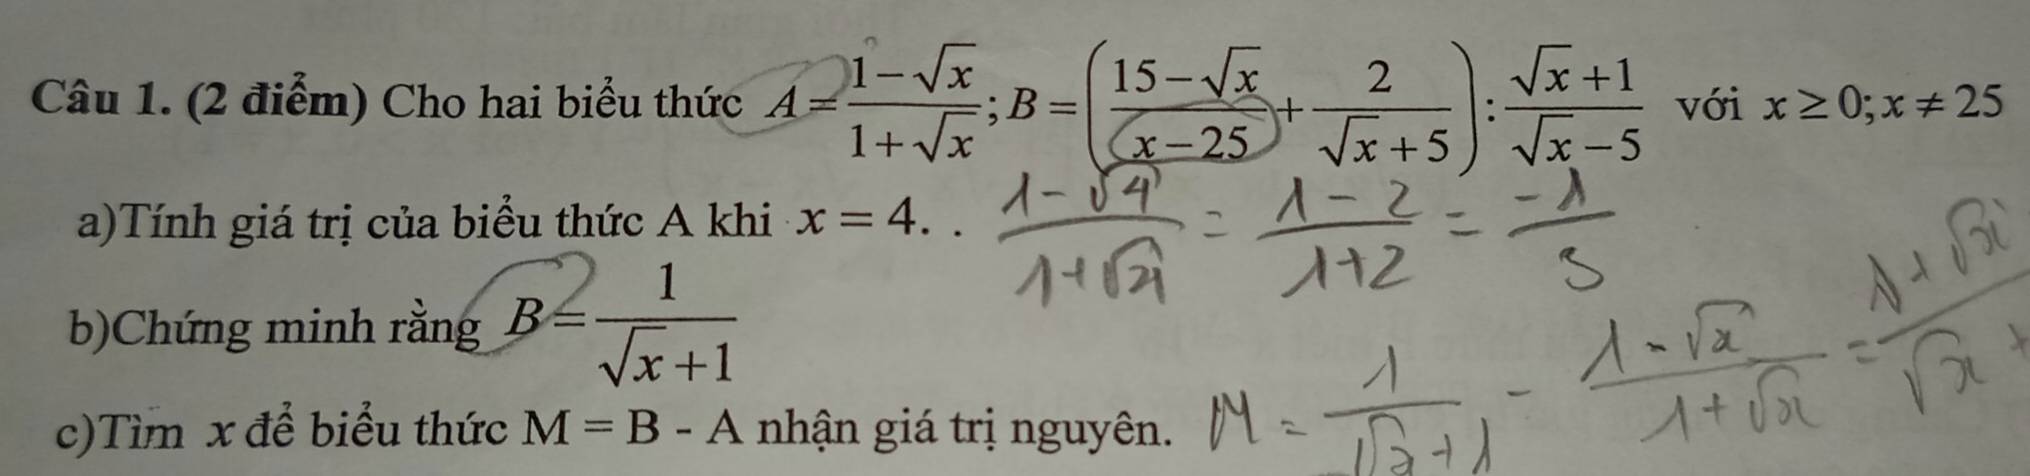 Câu 1. (2 điểm) Cho hai biểu thức A = (1 - √x)/(1 + √x); B = ((15 - √x)/(x - 25) + 2/(√x + 5)) : (√x + 1)/(√x - 5) với x ≥ 0; x ≠ 25
a)Tính giá trị của biểu thức A khi x = 4. . (1 - √4)/(1 + √4) = (1 - 2)/(1 + 2) = (-1)/3
b)Chứng minh rằng B = 1/(√x + 1)
c)Tìm x để biểu thức M = B - A nhận giá trị nguyên. M = 1/(√x + 1) - (1 - √x)/(1 + √x) =